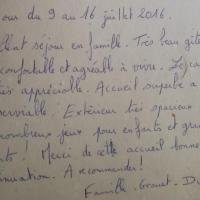 our du 9 au 16 juillet 2016.
llent séjour en famille. Très beau gîte
confortable et agréable à vivre. Le ca
rès appréciable. Accueil superbe a
serviable. Extérieur très spacieux
nombreux jeux pour enfants et gra
ts! Merci de cette accueil bonne
inuation. A recommander!
Famille